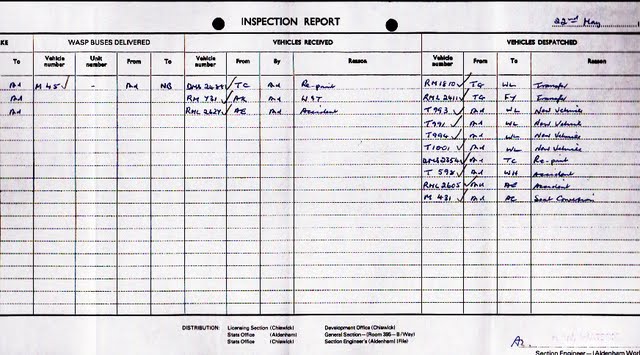 INSPECTION REPORT 22nd May
KE WASP BUSES DELIVERED VEHICLES RECEIVED VEHICLES DESPATCHED
To Vehicle number Unit number From To Vehicle number From By Reason Vehicle number From To Reason
Ad M 45 ✓ - Ad NB TC Ad Re-paint RM1810 ✓ TG WL Transfer
Ad RM 731 ✓ AR Ad RML2411 ✓ TG FY Transfer
Ad RML 2627 ✓ AE Ad Accident T993 ✓ Ad WL New Vehicle
T991 ✓ Ad WL New Vehicle
T994 ✓ Ad WL New Vehicle
T1001 ✓ Ad WL New Vehicle
DMS2354 ✓ Ad TC Re-paint
T 598 ✓ Ad WH Accident
RML2605 ✓ Ad AE Accident
M 431 ✓ Ad AE Seat Conversion
DISTRIBUTION: Licensing Section (Chiswick) Development Office (Chiswick)
Stats Office (Aldenham) General Section—(Room 395—B/Way)
Stats Office (Chiswick) Section Engineer's (Aldenham) (File)
Section Engineer—(Aldenham Wor